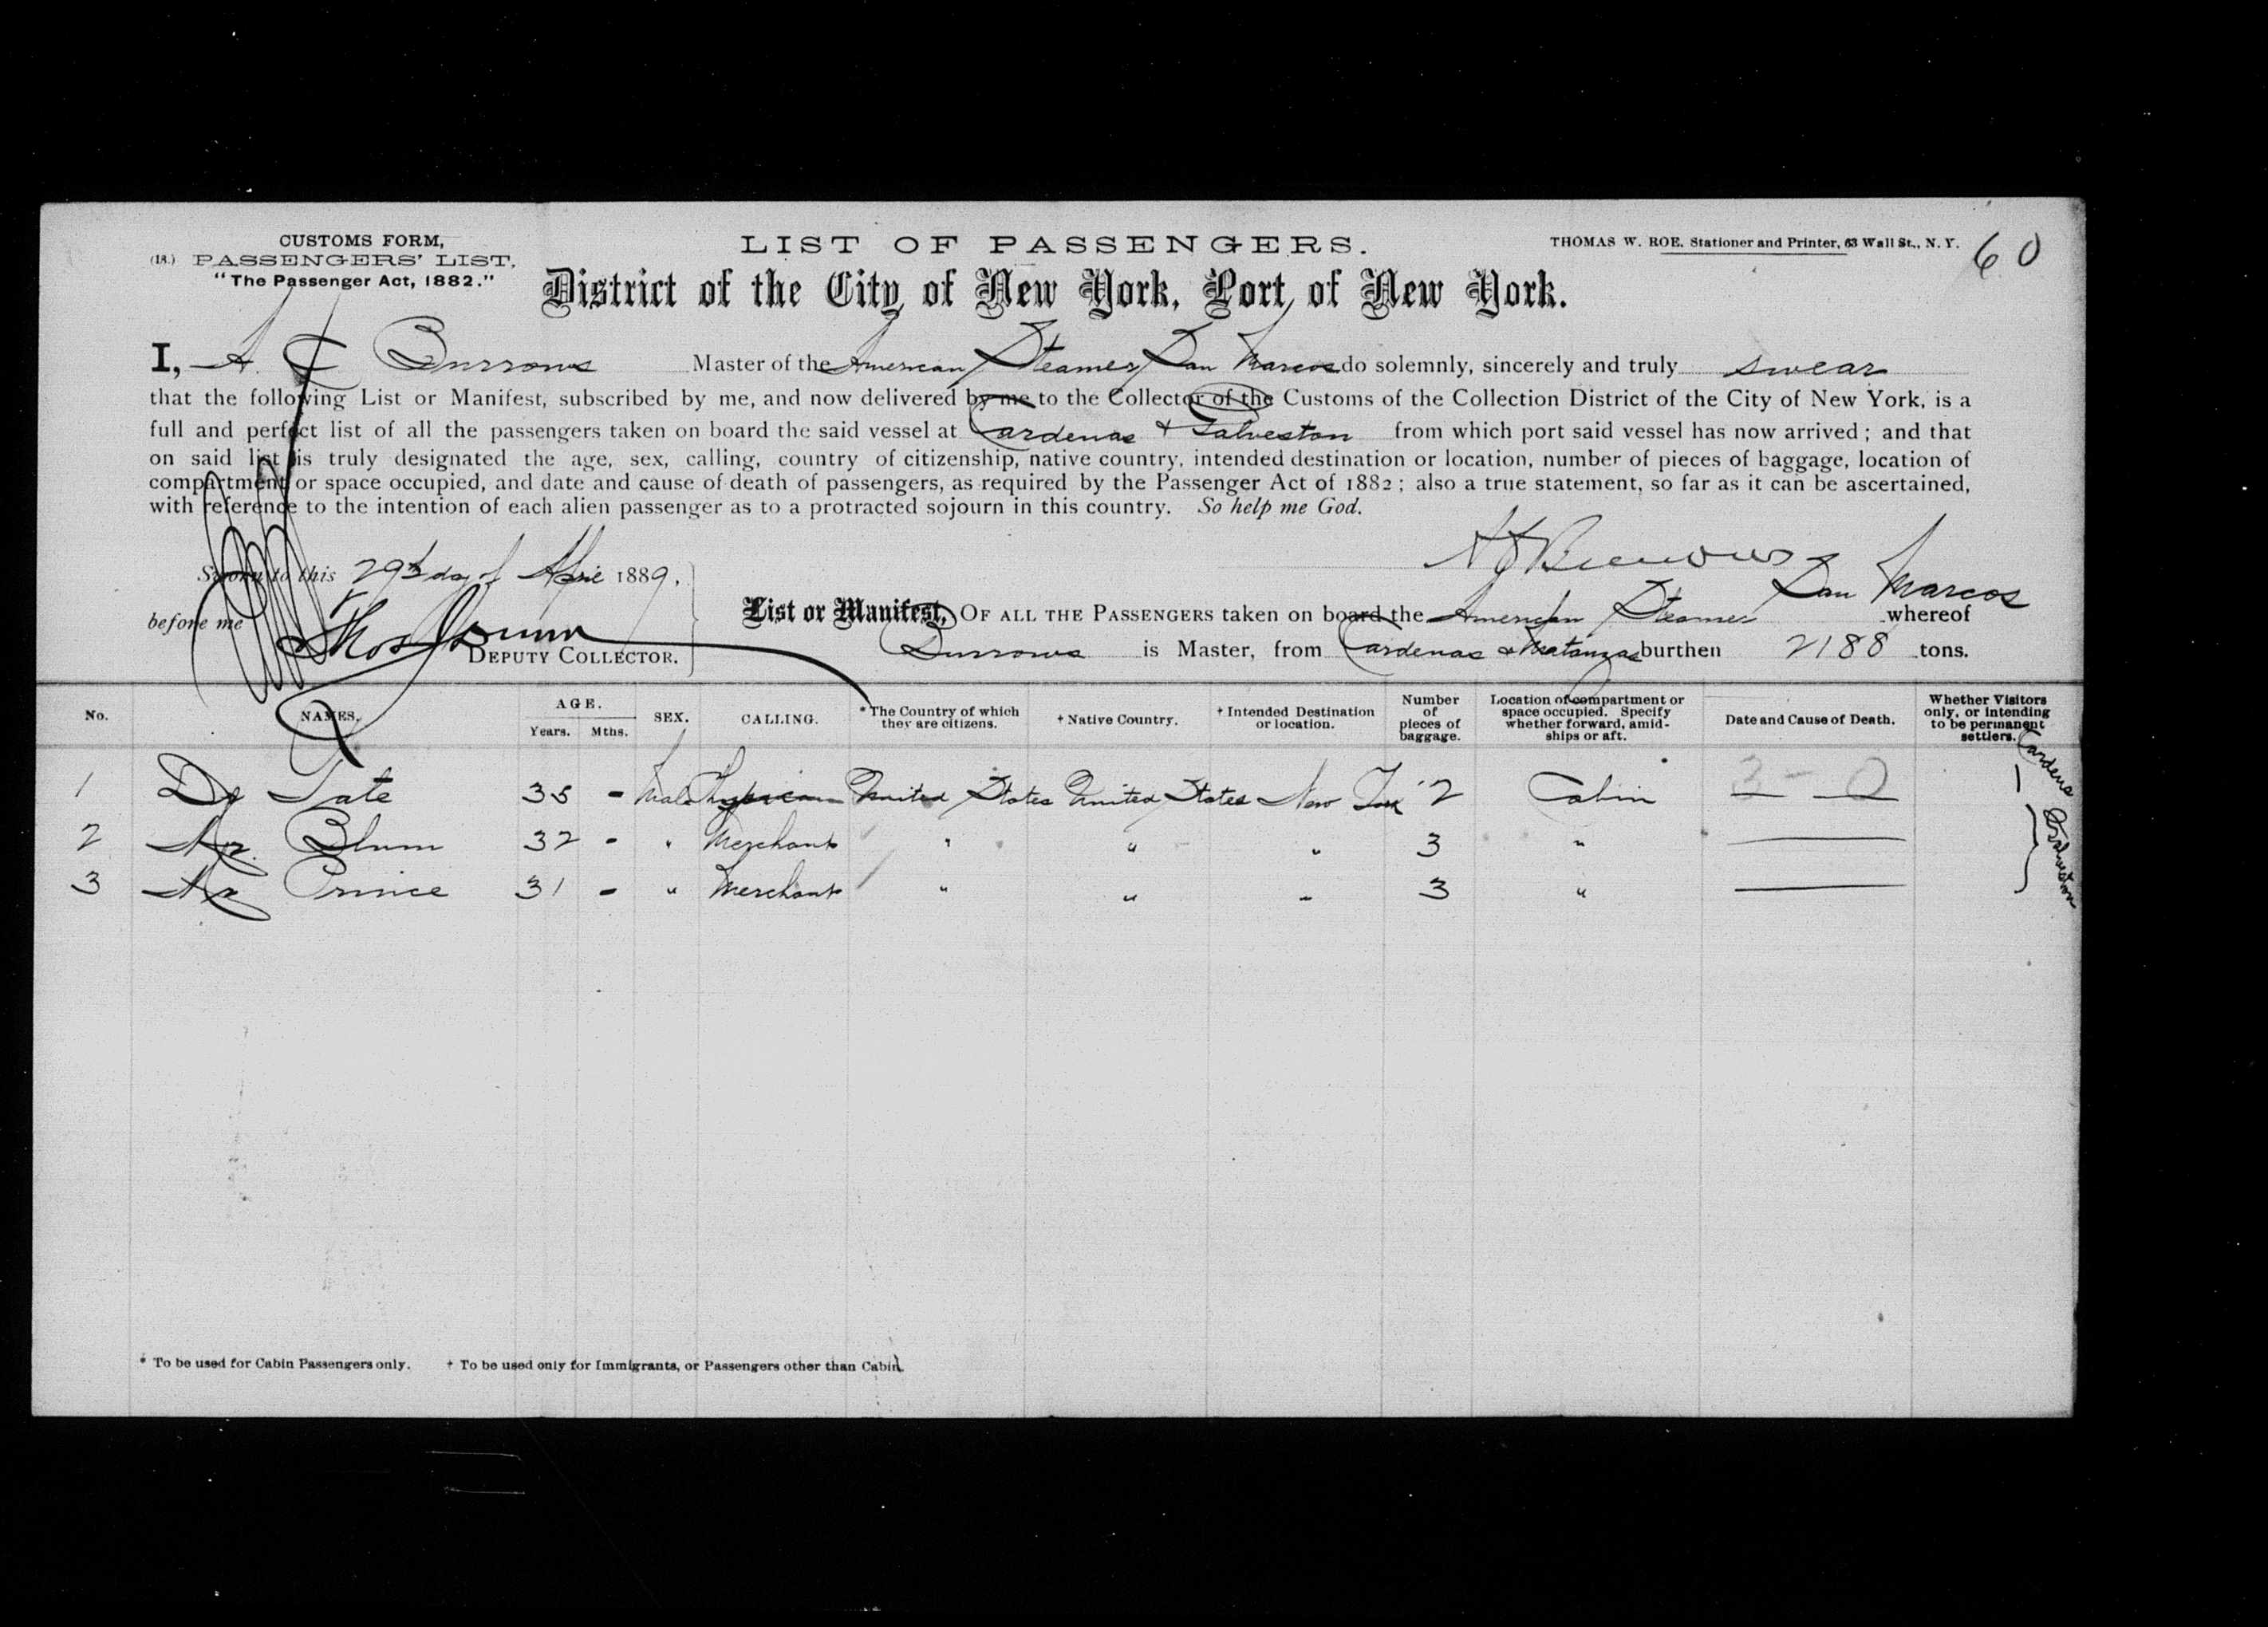 CUSTOMS FORM,
(18.) PASSENGERS' LIST,
"The Passenger Act, 1882."
LIST OF PASSENGERS.
THOMAS W. ROE, Stationer and Printer, 63 Wall St., N. Y.
60
District of the City of New York, Port of New York.
I, A. Burrows Master of the American Steamer San Marcos do solemnly, sincerely and truly swear
that the following List or Manifest, subscribed by me, and now delivered by me to the Collector of the Customs of the Collection District of the City of New York, is a
full and perfect list of all the passengers taken on board the said vessel at Cardenas + Galveston from which port said vessel has now arrived; and that
on said list is truly designated the age, sex, calling, country of citizenship, native country, intended destination or location, number of pieces of baggage, location of
compartment or space occupied, and date and cause of death of passengers, as required by the Passenger Act of 1882; also a true statement, so far as it can be ascertained,
with reference to the intention of each alien passenger as to a protracted sojourn in this country. So help me God.
Sworn to this 29th day of April 1889,
before me Thos Dunn
DEPUTY COLLECTOR.
Burrows
List or Manifest, OF ALL THE PASSENGERS taken on board the American Steamer San Marcos whereof
Burrows is Master, from Cardenas + Matanzas burthen 2188 tons.
No. NAMES. AGE. Years. Mths. SEX. CALLING. *The Country of which they are citizens. † Native Country. † Intended Destination or location. Number of pieces of baggage. Location of compartment or space occupied. Specify whether forward, amidships or aft. Date and Cause of Death. Whether Visitors only, or intending to be permanent settlers.
1 Dr Tate 35 - Male Physician United States United States New York 2 Cabin 3 - 0 Cardenas
2 Mr. Blum 32 - " Merchant " " " 3 "
3 Mr Prince 31 - " Merchant " " " 3 " Galveston
* To be used for Cabin Passengers only. † To be used only for Immigrants, or Passengers other than Cabin.